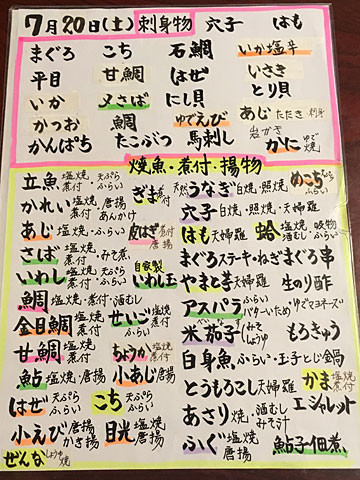 7月20日(土) 刺身物 穴子 はも
まぐろ こち 石鯛 いか塩辛
平目 甘鯛 はぜ いさき
いか 〆さば にし貝 とり貝
かつお 鯛 ゆでえび あじ たたき・刺身
かんぱち たこぶつ 馬刺し 岩がき かに ゆで 焼
焼魚・煮付・揚物
立魚 塩焼 煮付・天ぷら ふらい
かれい 塩焼・唐揚 煮付 あんかけ
あじ 塩焼・ふらい
さば 塩焼 煮付・みそ煮
いわし 塩焼・天ぷら 煮付 ふらい
鯛 塩焼・煮付・酒むし
金目鯛 塩焼 煮付
甘鯛 塩焼 煮付
鮎 塩焼・唐揚
はぜ 天ぷら ふらい
小えび 唐揚 かき揚
ぜんな しょうゆ 焼
ぎま 塩焼 煮付
皮はぎ 煮付 唐揚
自家製 いわし玉
せいご 塩焼 ふらい
小あじ 唐揚
こち 天ぷら ふらい
目光 唐揚
天然 うなぎ 白焼・照焼
めごち 天ぷら ふらい
穴子 白焼・照焼・天婦羅
はも 天婦羅 蛤 塩焼・吸物 酒むし・ふらい
まぐろステーキ・ねぎまぐろ串
やまと芋 天婦羅 生のり酢
アスパラ ふらい バターいため・ゆでマヨネーズ
米茄子 みそ しょうゆ もろきゅう
白身魚 ふらい・玉子とじ合鍋
とうもろこし 天婦羅 かま 塩焼 煮付
あさり 焼・酒むし みそ汁 エシャレット
ふぐ 塩焼 唐揚 鮎子佃煮